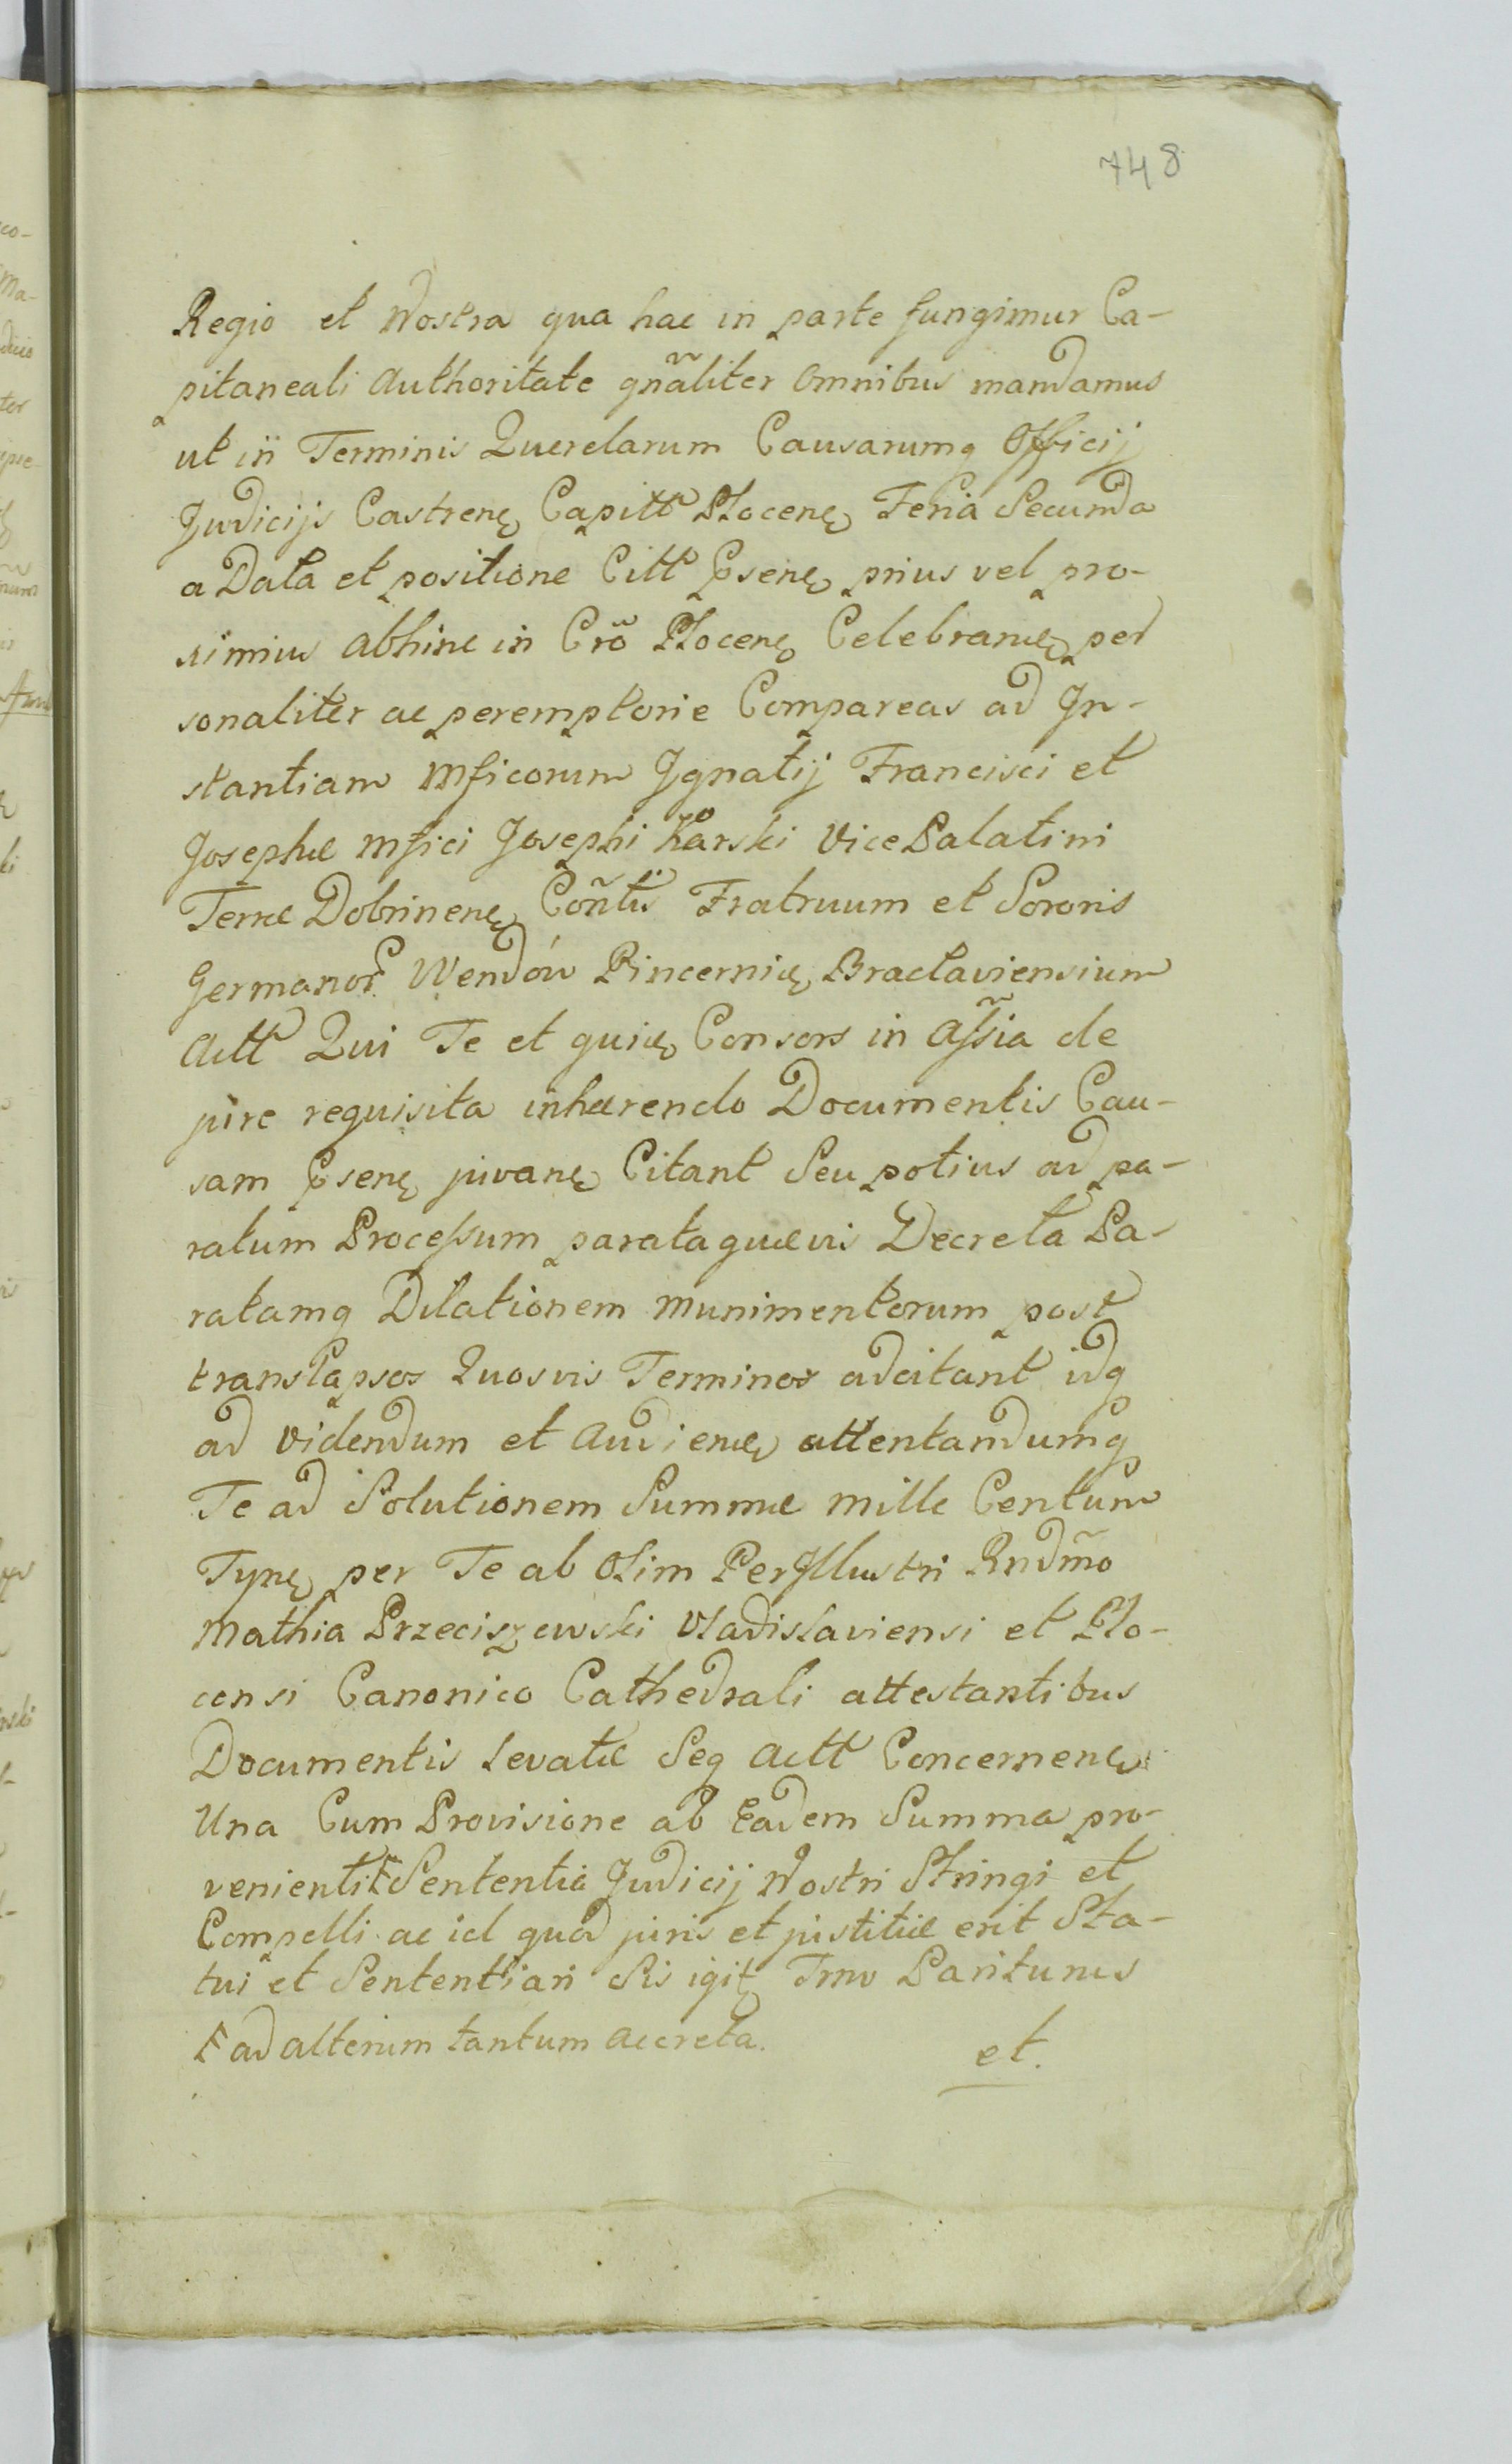 748
Regio et Nostra qua hac in parte fungimur Ca-
pitaneali Authoritate gñaliter Omnibus mandamus
ut in Terminis Querelarum Causarumq Officij
Judicijs Castrenę Capitt Plocenę Feria Secunda
a Data et positione Citt Psenę prius vel pro-
ximius abhinc in Crõ Plocenę Celebranę per
sonaliter ac peremptorie Compareas ad In-
stantiam Mficorum Ignatij Francisci et
Josephæ Mfici Josephi Karski Vice Palatini
Terræ Dobrinenę Coñtis Fratruum et Sororis
Germanor Wendów Pincernię Braclaviensium
Actt Qui Te et quię Consors in Assia de
jure requisita inhærendo Documentis Cau-
sam Psenę juvanę Citant Seu potius ad pa-
ratum Processum parataquævis Decreta Pa-
ratamq Dilationem Munimentorum post
translapsos Quosvis Terminos adcitant idq
ad Videndum et Audienę attentandumq
Te ad Solutionem Summæ Mille Centum
Tynę per Te ab Olim PerIllustri Rndmõ
Mathia Przeciszewski Vladislaviensi et Plo-
censi Canonico Cathedrali attestantibus
Documentis levatæ Seq Actt Concernenę
Una Cum Provisione ab Eadem Summa pro-
venienti F Sententia Judicij Nostri Stringi et
Compelli ac id quod juris et justitiæ erit Sta-
tui et Sententiari Sis igitę Trno Pariturus
F ad alterum tantum accreta.
et.